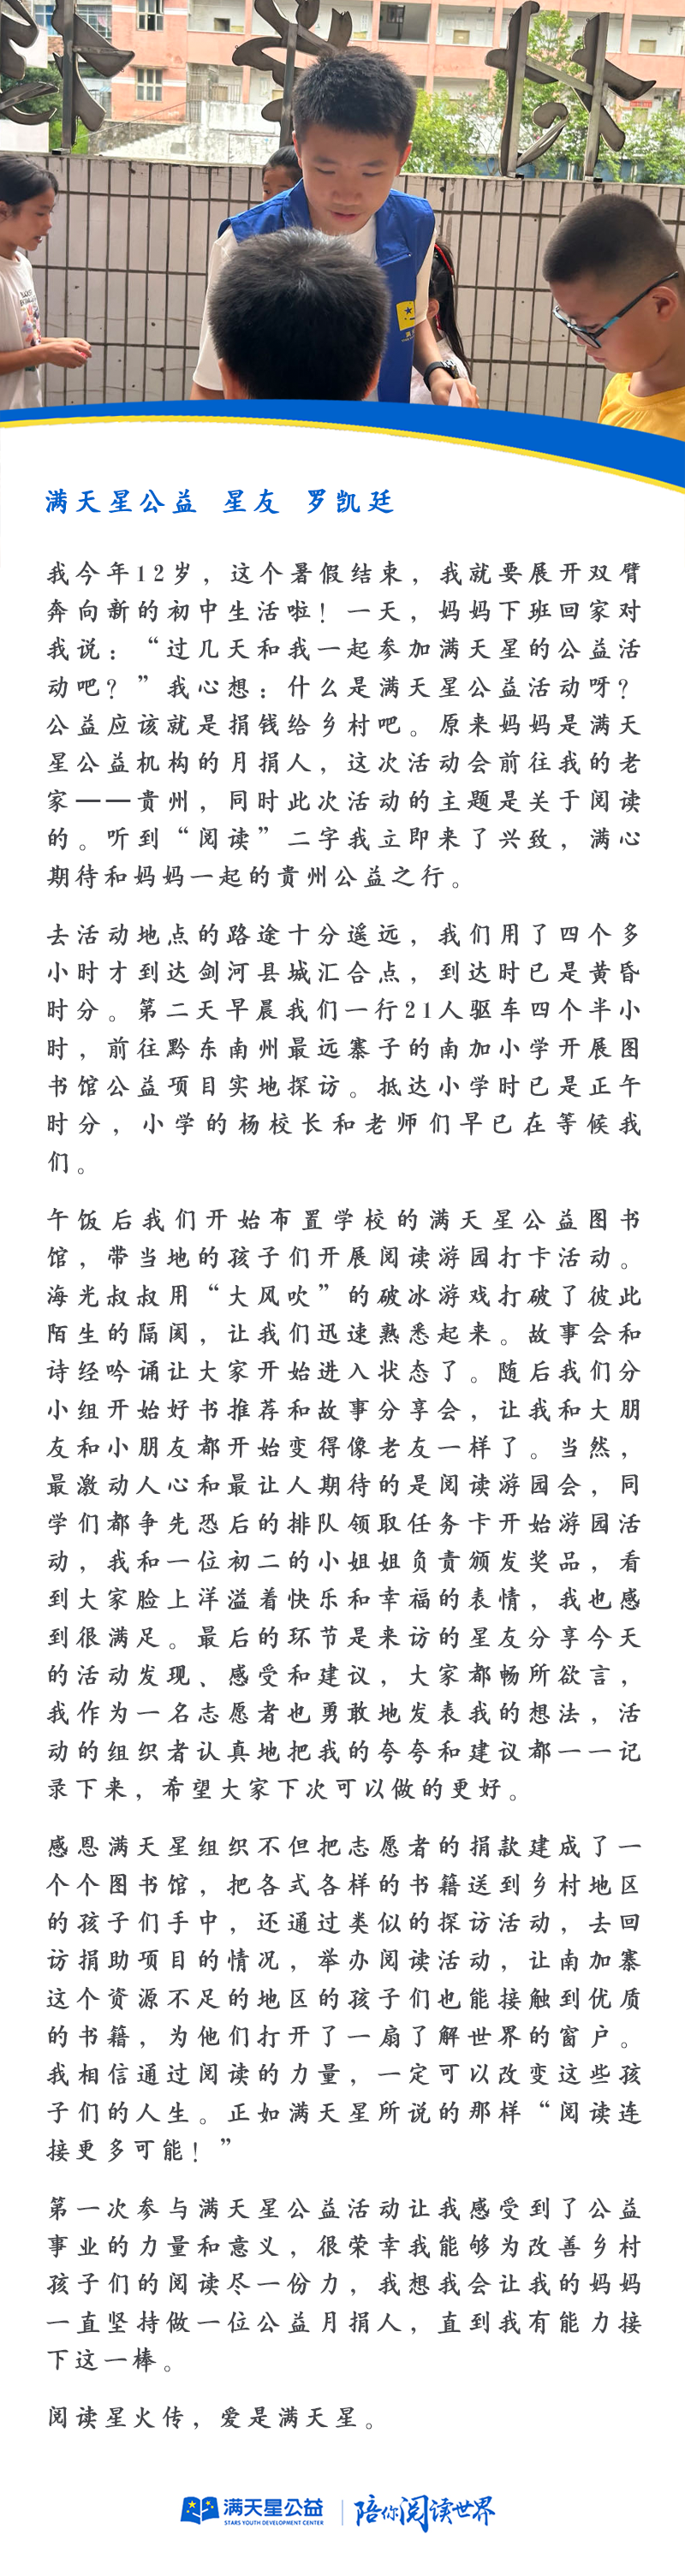 满天星公益 星友 罗凯廷
我今年12岁，这个暑假结束，我就要展开双臂
奔向新的初中生活啦！一天，妈妈下班回家对
我说：“过几天和我一起参加满天星的公益活
动吧？”我心想：什么是满天星公益活动呀？
公益应该就是捐钱给乡村吧。原来妈妈是满天
星公益机构的月捐人，这次活动会前往我的老
家——贵州，同时此次活动的主题是关于阅读
的。听到“阅读”二字我立即来了兴致，满心
期待和妈妈一起的贵州公益之行。
去活动地点的路途十分遥远，我们用了四个多
小时才到达剑河县城汇合点，到达时已是黄昏
时分。第二天早晨我们一行21人驱车四个半小
时，前往黔东南州最远寨子的南加小学开展图
书馆公益项目实地探访。抵达小学时已是正午
时分，小学的杨校长和老师们早已在等候我
们。
午饭后我们开始布置学校的满天星公益图书
馆，带当地的孩子们开展阅读游园打卡活动。
海光叔叔用“大风吹”的破冰游戏打破了彼此
陌生的隔阂，让我们迅速熟悉起来。故事会和
诗经吟诵让大家开始进入状态了。随后我们分
小组开始好书推荐和故事分享会，让我和大朋
友和小朋友都开始变得像老友一样了。当然，
最激动人心和最让人期待的是阅读游园会，同
学们都争先恐后的排队领取任务卡开始游园活
动，我和一位初二的小姐姐负责颁发奖品，看
到大家脸上洋溢着快乐和幸福的表情，我也感
到很满足。最后的环节是来访的星友分享今天
的活动发现、感受和建议，大家都畅所欲言，
我作为一名志愿者也勇敢地发表我的想法，活
动的组织者认真地把我的夸夸和建议都一一记
录下来，希望大家下次可以做的更好。
感恩满天星组织不但把志愿者的捐款建成了一
个个图书馆，把各式各样的书籍送到乡村地区
的孩子们手中，还通过类似的探访活动，去回
访捐助项目的情况，举办阅读活动，让南加寨
这个资源不足的地区的孩子们也能接触到优质
的书籍，为他们打开了一扇了解世界的窗户。
我相信通过阅读的力量，一定可以改变这些孩
子们的人生。正如满天星所说的那样“阅读连
接更多可能！”
第一次参与满天星公益活动让我感受到了公益
事业的力量和意义，很荣幸我能够为改善乡村
孩子们的阅读尽一份力，我想我会让我的妈妈
一直坚持做一位公益月捐人，直到我有能力接
下这一棒。
阅读星火传，爱是满天星。
满天星公益
STARS YOUTH DEVELOPMENT CENTER
陪你阅读世界